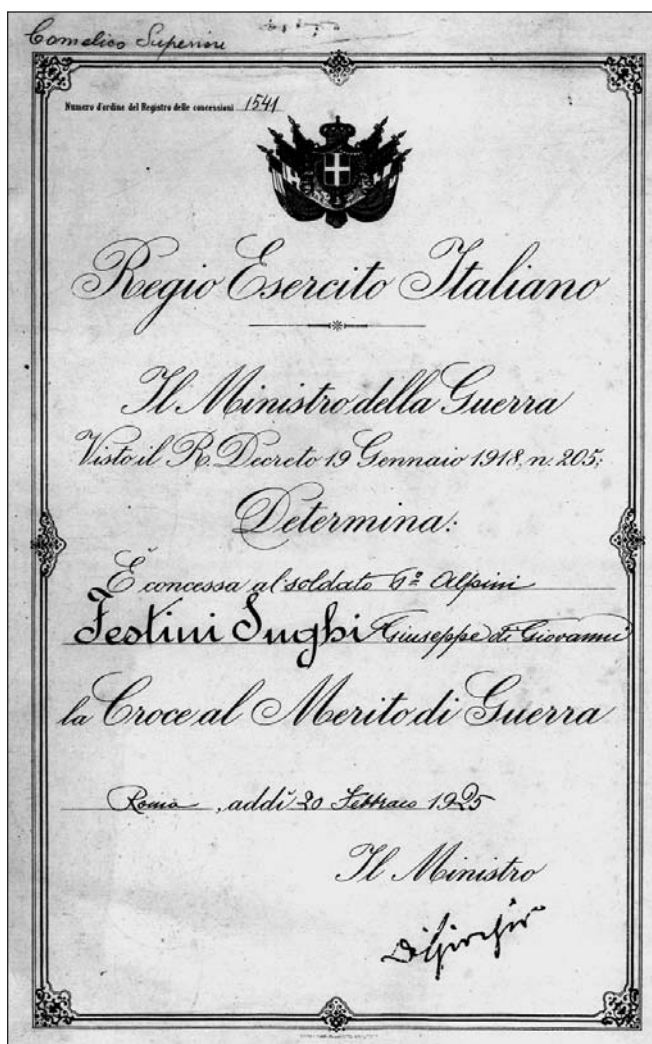 Comelico Superiore
Numero d'ordine del Registro delle concessioni 1541
Regio Esercito Italiano
Il Ministro della Guerra
Visto il R. Decreto 19 Gennaio 1918, n. 205;
Determina:
È concessa al soldato Alpini
Festini Sughi Giuseppe di Giovanni
la Croce al Merito di Guerra
Roma, addì 20 Febbraio 1925
Il Ministro